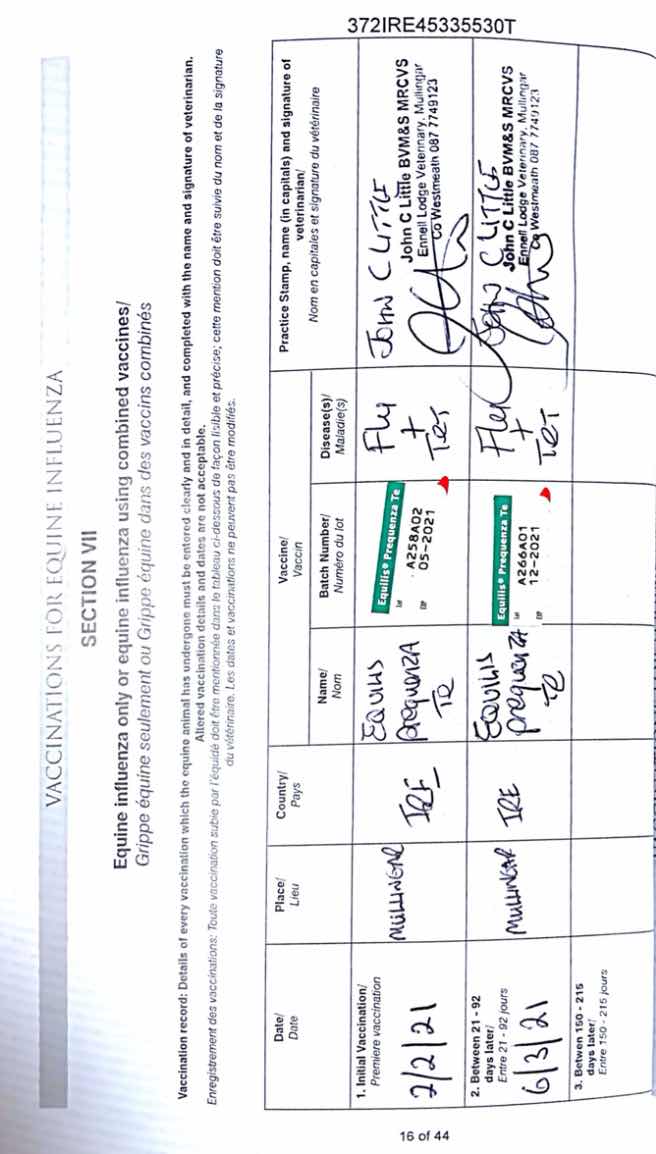 372IRE45335530T
VACCINATIONS FOR EQUINE INFLUENZA
SECTION VII
Equine influenza only or equine influenza using combined vaccines/
Grippe équine seulement ou Grippe équine dans des vaccins combinés
Vaccination record: Details of every vaccination which the equine animal has undergone must be entered clearly and in detail, and completed with the name and signature of veterinarian.
Altered vaccination details and dates are not acceptable.
Enregistrement des vaccinations: Toute vaccination subie par l'équidé doit être mentionnée dans le tableau ci-dessous de façon lisible et précise; cette mention doit être suivie du nom et de la signature
du vétérinaire. Les dates et vaccinations ne peuvent pas être modifiés.
Date/
Date
Place/
Lieu
Country/
Pays
Vaccine/
Vaccin
Name/
Nom
Batch Number/
Numéro du lot
Disease(s)/
Maladie(s)
Practice Stamp, name (in capitals) and signature of
veterinarian/
Nom en capitales et signature du vétérinaire
1. Initial Vaccination/
Premiere vaccination
2/2/21
MULLINGAR
IRE
EQUILIS
prequenza
Te
Equilis® Prequenza Te
A258A02
05-2021
Flu
+
Tet
JOHN C LITTLE
John C Little BVM&S MRCVS
Ennell Lodge Veterinary, Mullingar
Co Westmeath 087 7749123
2. Between 21 - 92
days later/
Entre 21 - 92 jours
6/3/21
MULLINGAR
IRE
EQUILIS
prequenza
Te
Equilis® Prequenza Te
A266A01
12-2021
Flu
+
Tet
JOHN C LITTLE
John C Little BVM&S MRCVS
Ennell Lodge Veterinary, Mullingar
Co Westmeath 087 7749123
3. Betwen 150 - 215
days later/
Entre 150 - 215 jours
16 of 44